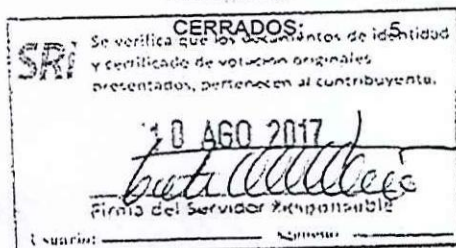 CERRADOS: 5
SRi Se verifica que los documentos de identidad
y certificado de votación originales
presentados, pertenecen al contribuyente.
10 AGO 2017
Firma del Servidor Responsable
Usuario: